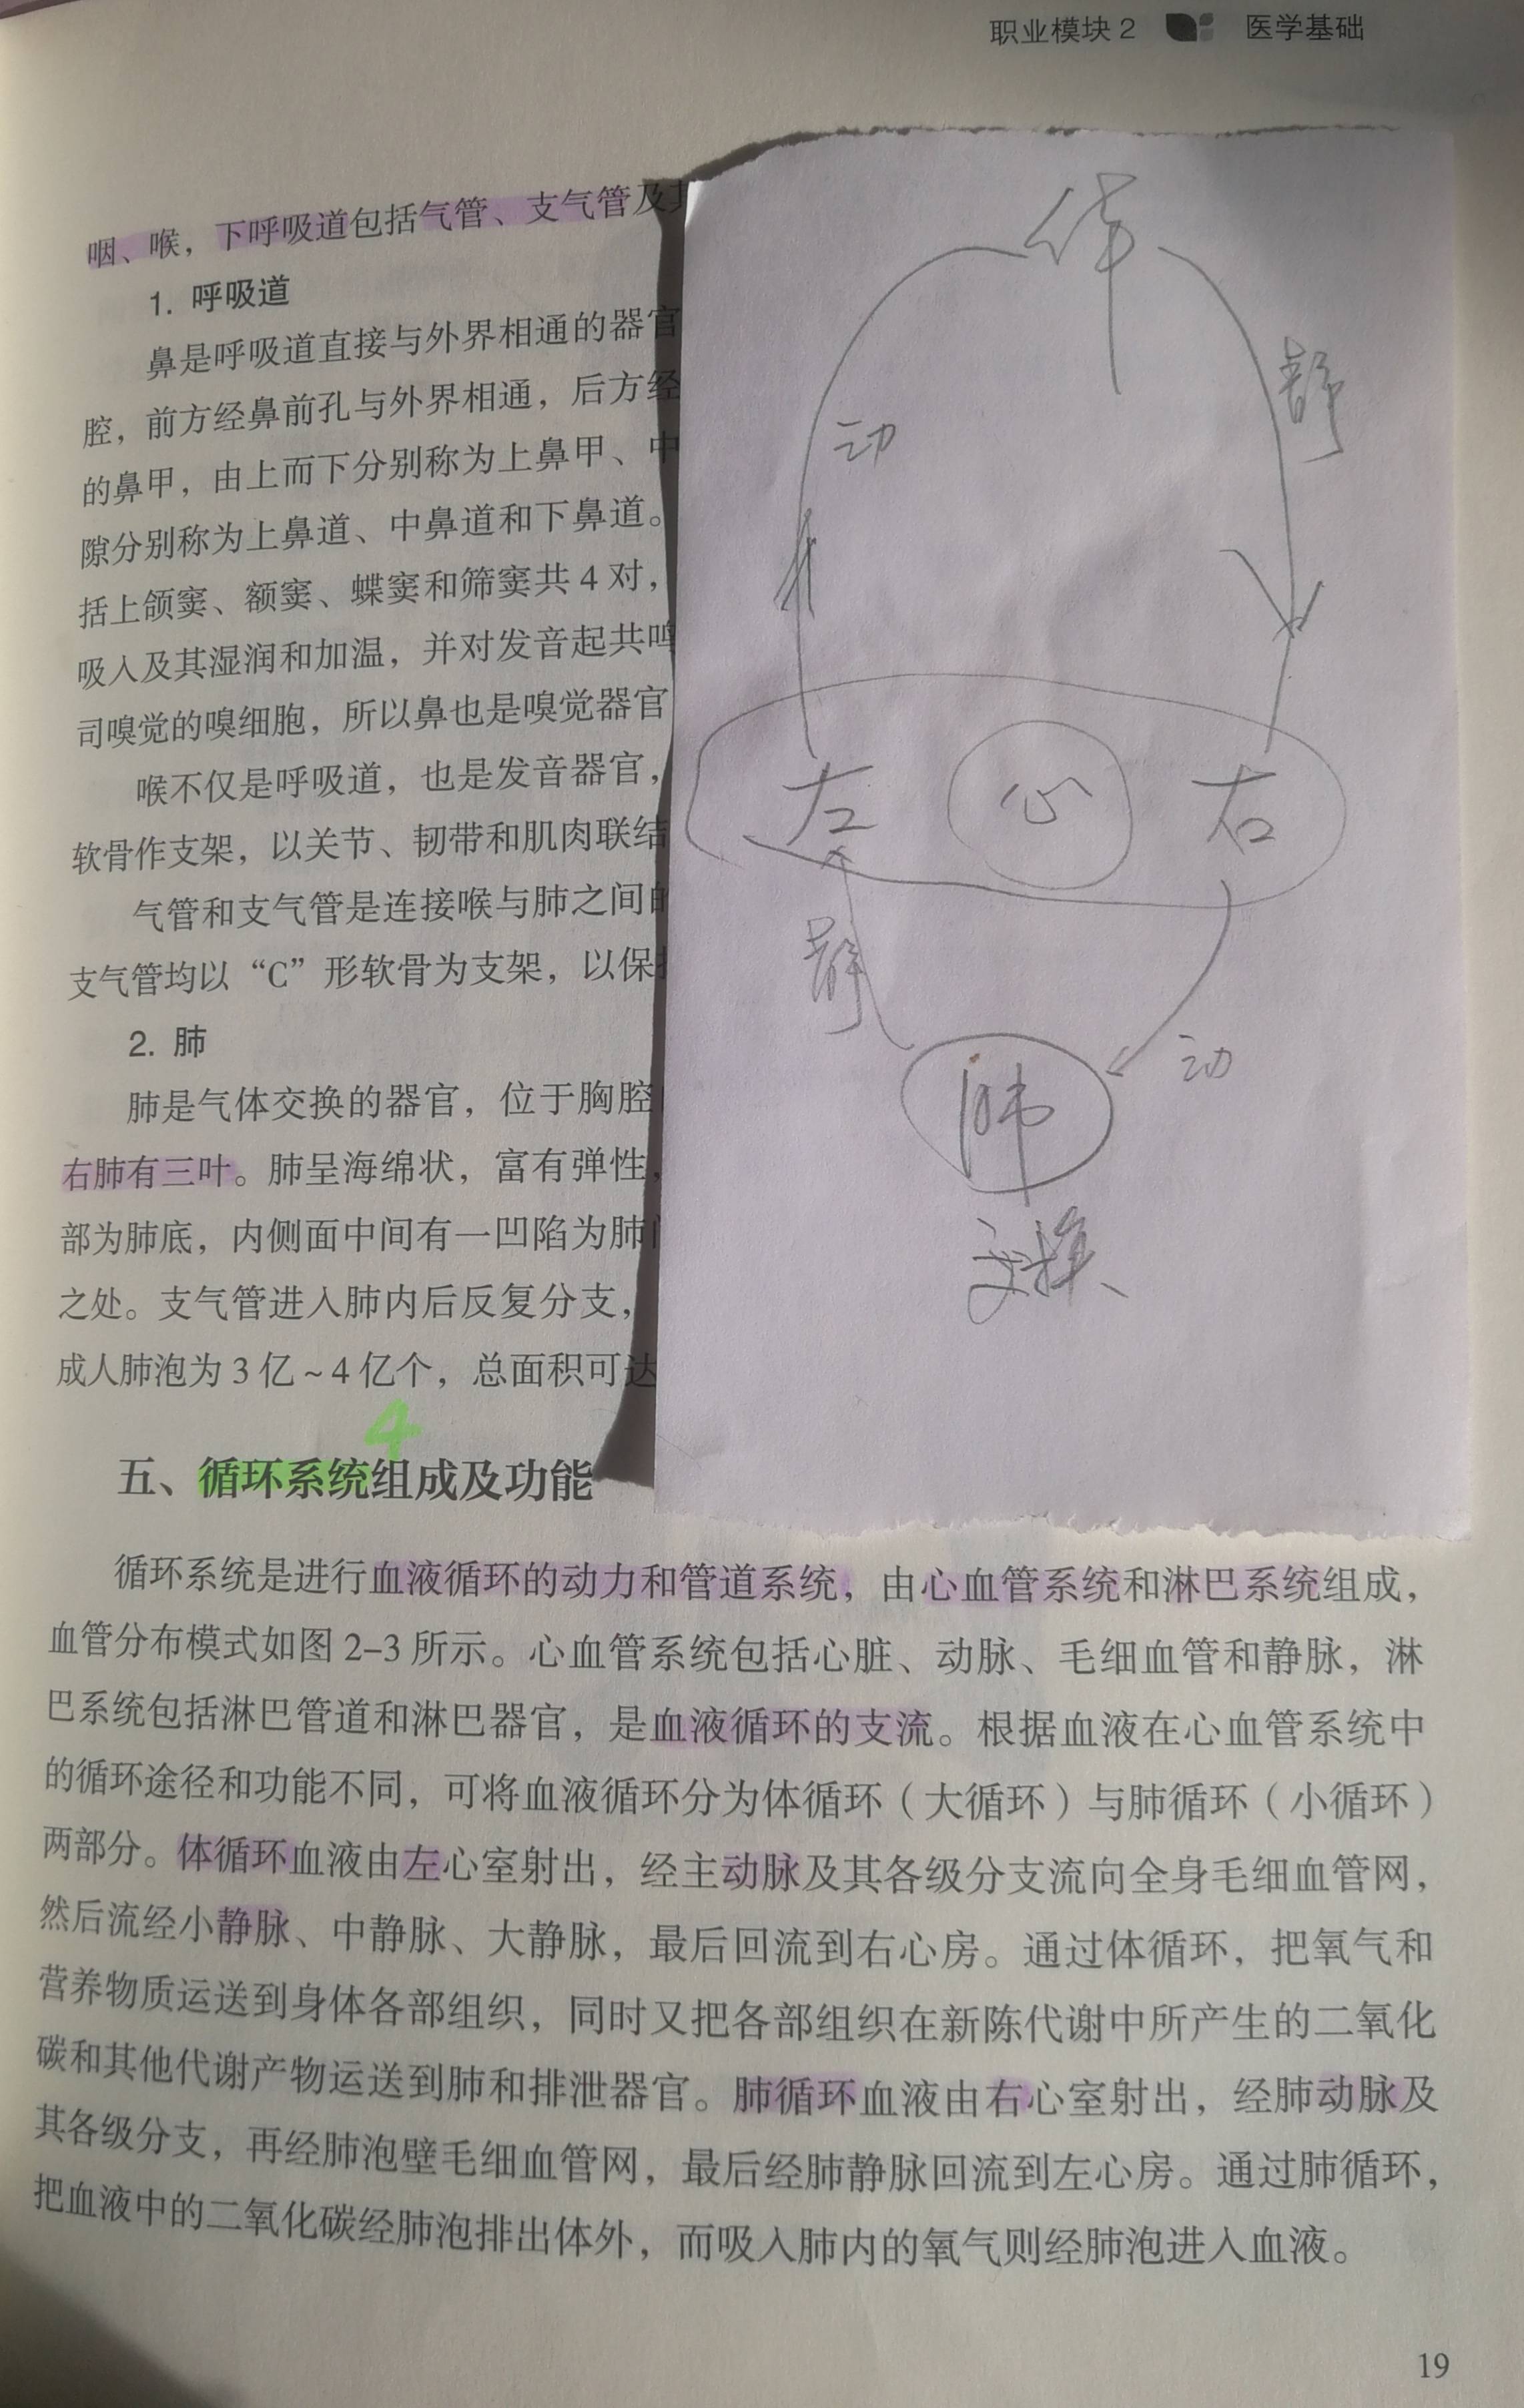 职业模块2 医学基础
咽、喉，下呼吸道包括气管、支气管及其
1. 呼吸道
鼻是呼吸道直接与外界相通的器官
腔，前方经鼻前孔与外界相通，后方经
的鼻甲，由上而下分别称为上鼻甲、中
隙分别称为上鼻道、中鼻道和下鼻道。
括上颌窦、额窦、蝶窦和筛窦共4对，
吸入及其湿润和加温，并对发音起共鸣
司嗅觉的嗅细胞，所以鼻也是嗅觉器官
喉不仅是呼吸道，也是发音器官，
软骨作支架，以关节、韧带和肌肉联结
气管和支气管是连接喉与肺之间的
支气管均以“C”形软骨为支架，以保持
2. 肺
肺是气体交换的器官，位于胸腔
右肺有三叶。肺呈海绵状，富有弹性，
部为肺底，内侧面中间有一凹陷为肺门
之处。支气管进入肺内后反复分支，
成人肺泡为3亿~4亿个，总面积可达
体
动 静
左 心 右
静 动
肺
交换
4
五、循环系统组成及功能
循环系统是进行血液循环的动力和管道系统，由心血管系统和淋巴系统组成，
血管分布模式如图2-3所示。心血管系统包括心脏、动脉、毛细血管和静脉，淋
巴系统包括淋巴管道和淋巴器官，是血液循环的支流。根据血液在心血管系统中
的循环途径和功能不同，可将血液循环分为体循环（大循环）与肺循环（小循环）
两部分。体循环血液由左心室射出，经主动脉及其各级分支流向全身毛细血管网，
然后流经小静脉、中静脉、大静脉，最后回流到右心房。通过体循环，把氧气和
营养物质运送到身体各部组织，同时又把各部组织在新陈代谢中所产生的二氧化
碳和其他代谢产物运送到肺和排泄器官。肺循环血液由右心室射出，经肺动脉及
其各级分支，再经肺泡壁毛细血管网，最后经肺静脉回流到左心房。通过肺循环，
把血液中的二氧化碳经肺泡排出体外，而吸入肺内的氧气则经肺泡进入血液。
19